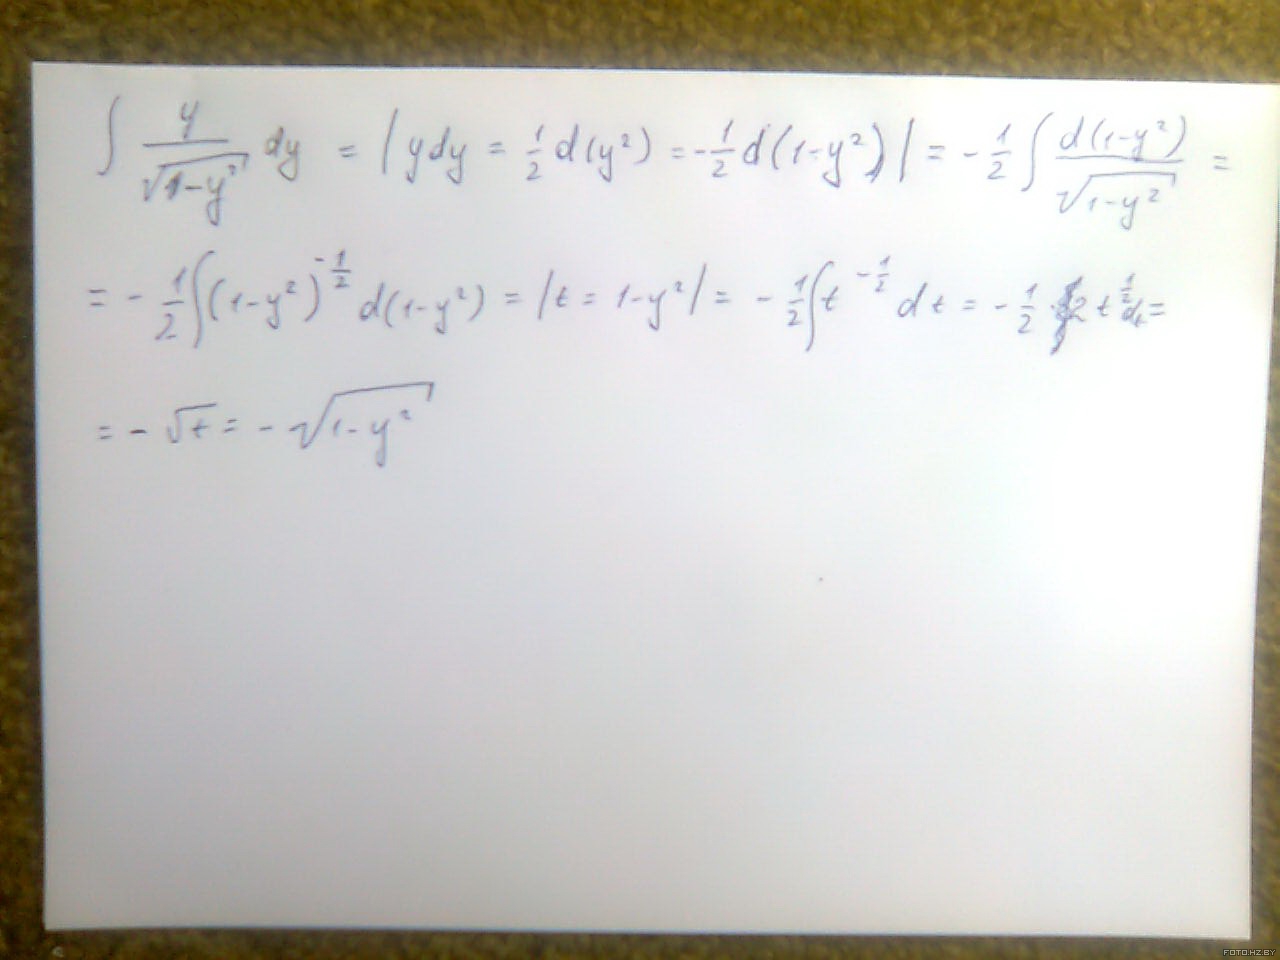 ∫ y/√(1-y²) dy = | ydy = 1/2 d(y²) = -1/2 d(1-y²) | = -1/2 ∫ d(1-y²)/√(1-y²) =
= -1/2 ∫ (1-y²)^(-1/2) d(1-y²) = | t = 1-y² | = -1/2 ∫ t^(-1/2) dt = -1/2 · 2 t^(1/2) dt =
= -√t = -√(1-y²)
FOTO.HZ.BY